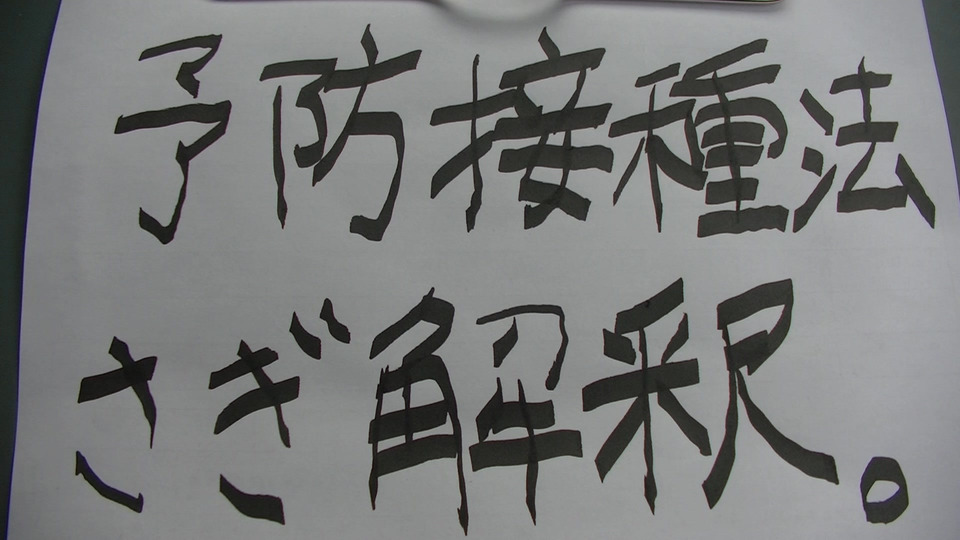 予防接種法
さぎ解釈。